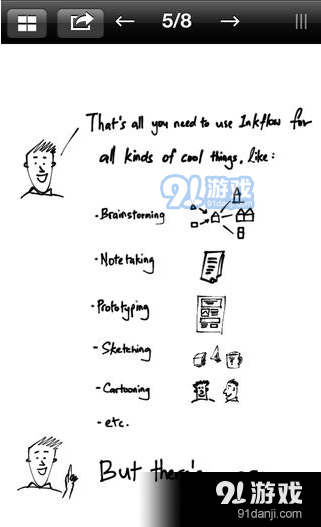 5/8
That's all you need to use Inkflow for
all kinds of cool things, like:
91游戏
- Brainstorming
- Notetaking
- Prototyping
- Sketching
- Cartooning
- etc.
But there's
91游戏
91danji.com